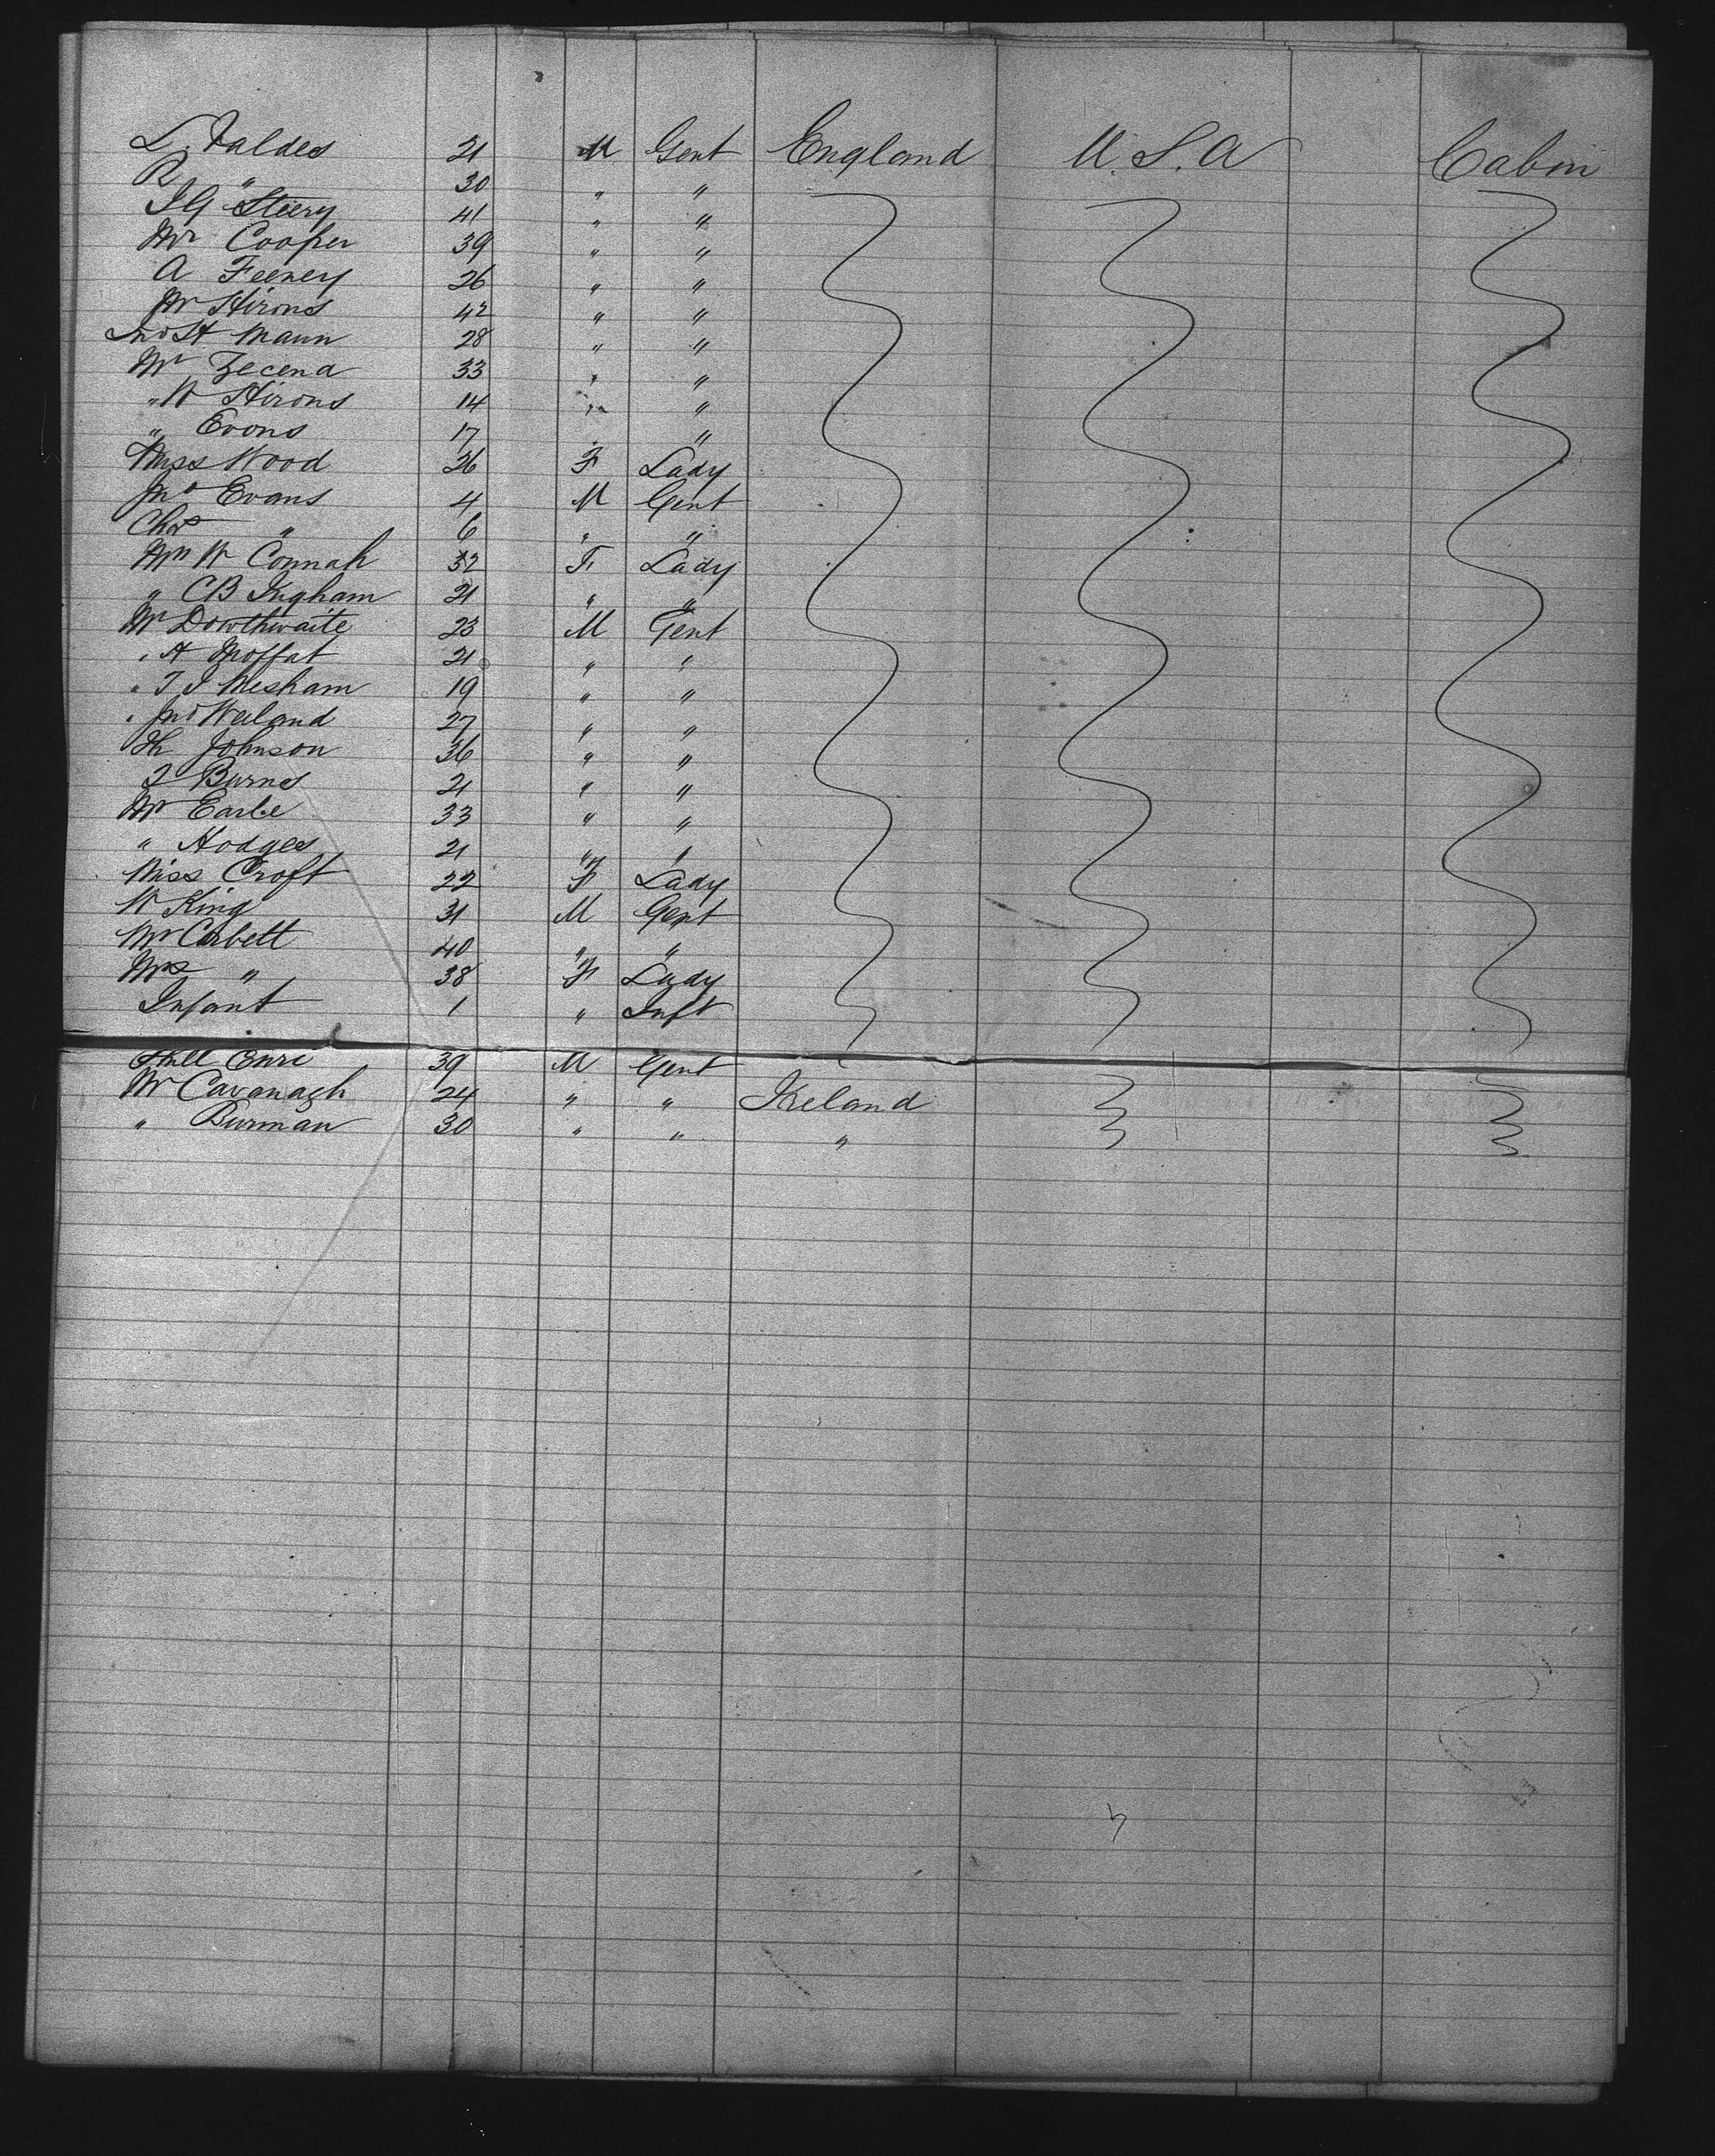 L. Valdes 21 M Gent England U.S.A Cabin
R " 30 " "
J G Steery 41 " "
Mr Cooper 39 " "
A Feeney 26 " "
Mr Hirons 42 " "
Jno H Mann 28 " "
Mr Zecena 33 " "
" W Hirons 14 " "
" Evons 17 " "
Miss Wood 26 F Lady
Jno Evans 4 M Gent
Chas " 6 " "
Mrs W Connah 32 F Lady
" CB Ingham 21 " "
Mr Dowthwaite 23 M Gent
" A Moffat 21 " "
" T J Mesham 19 " "
" Jno Weiland 27 " "
Th Johnson 36 " "
J Burns 21 " "
Mr Earle 33 " "
" Hodges 21 " "
Miss Croft 22 F Lady
W King 31 M Gent
Mr Corbett 40 " "
Mrs " 38 F Lady
Infant 1 " Inft
39 M Gent
Mr Cavanagh 24 " " Ireland
" Burman 30 " " "